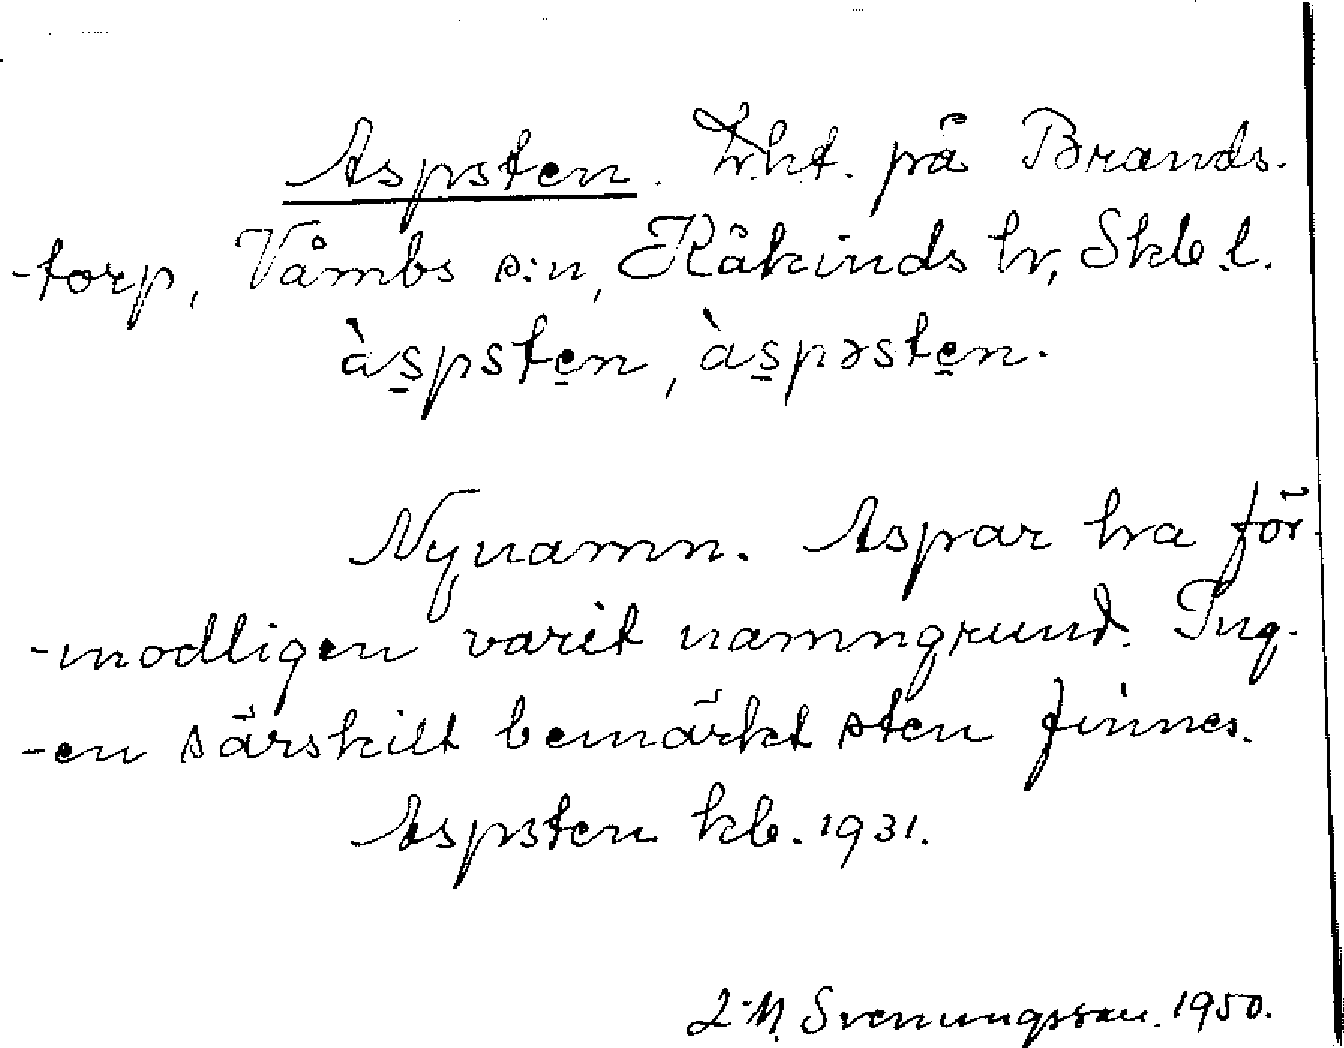 Aspsten. Lht. på Brands-
-torp, Våmbs s:n, Kåkinds hr, Skb.l.
às̠pste̠n, às̠pəste̠n.
Nynamn. Aspar ha för-
-modligen varit namngrund. Ing-
-en särskilt bemärkt sten finnes.
Aspsten kb. 1931.
L.M. Svenungsson. 1950.